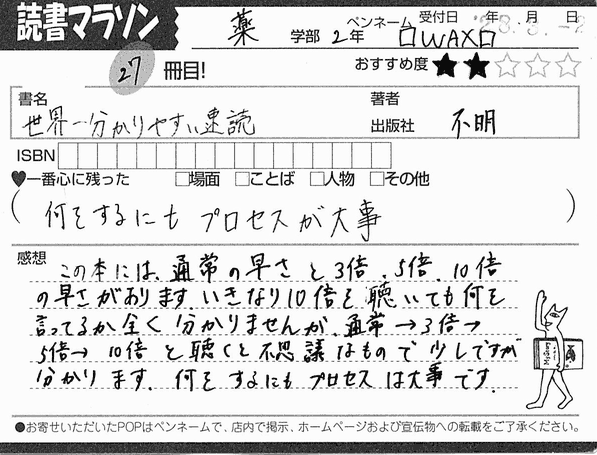 読書マラソン
薬 学部 2年 ペンネーム □WAX□ 受付日 '23.3.-2 年 月 日
27 冊目! おすすめ度 ★★☆☆☆
書名 世界一分かりやすい速読
著者 出版社 不明
ISBN
♥一番心に残った □場面 □ことば □人物 □その他
(何をするにも プロセスが大事)
感想 この本には、通常の早さと3倍、5倍、10倍
の早さがあります。いきなり10倍を聴いても何を
言ってるか全く分かりませんが、通常→3倍→
5倍→10倍と聴くと不思議なもので少しですが
分かります。何をするにもプロセスは大事です。
●お寄せいただいたPOPはペンネームで、店内で掲示、ホームページおよび宣伝物への転載をご了承ください。